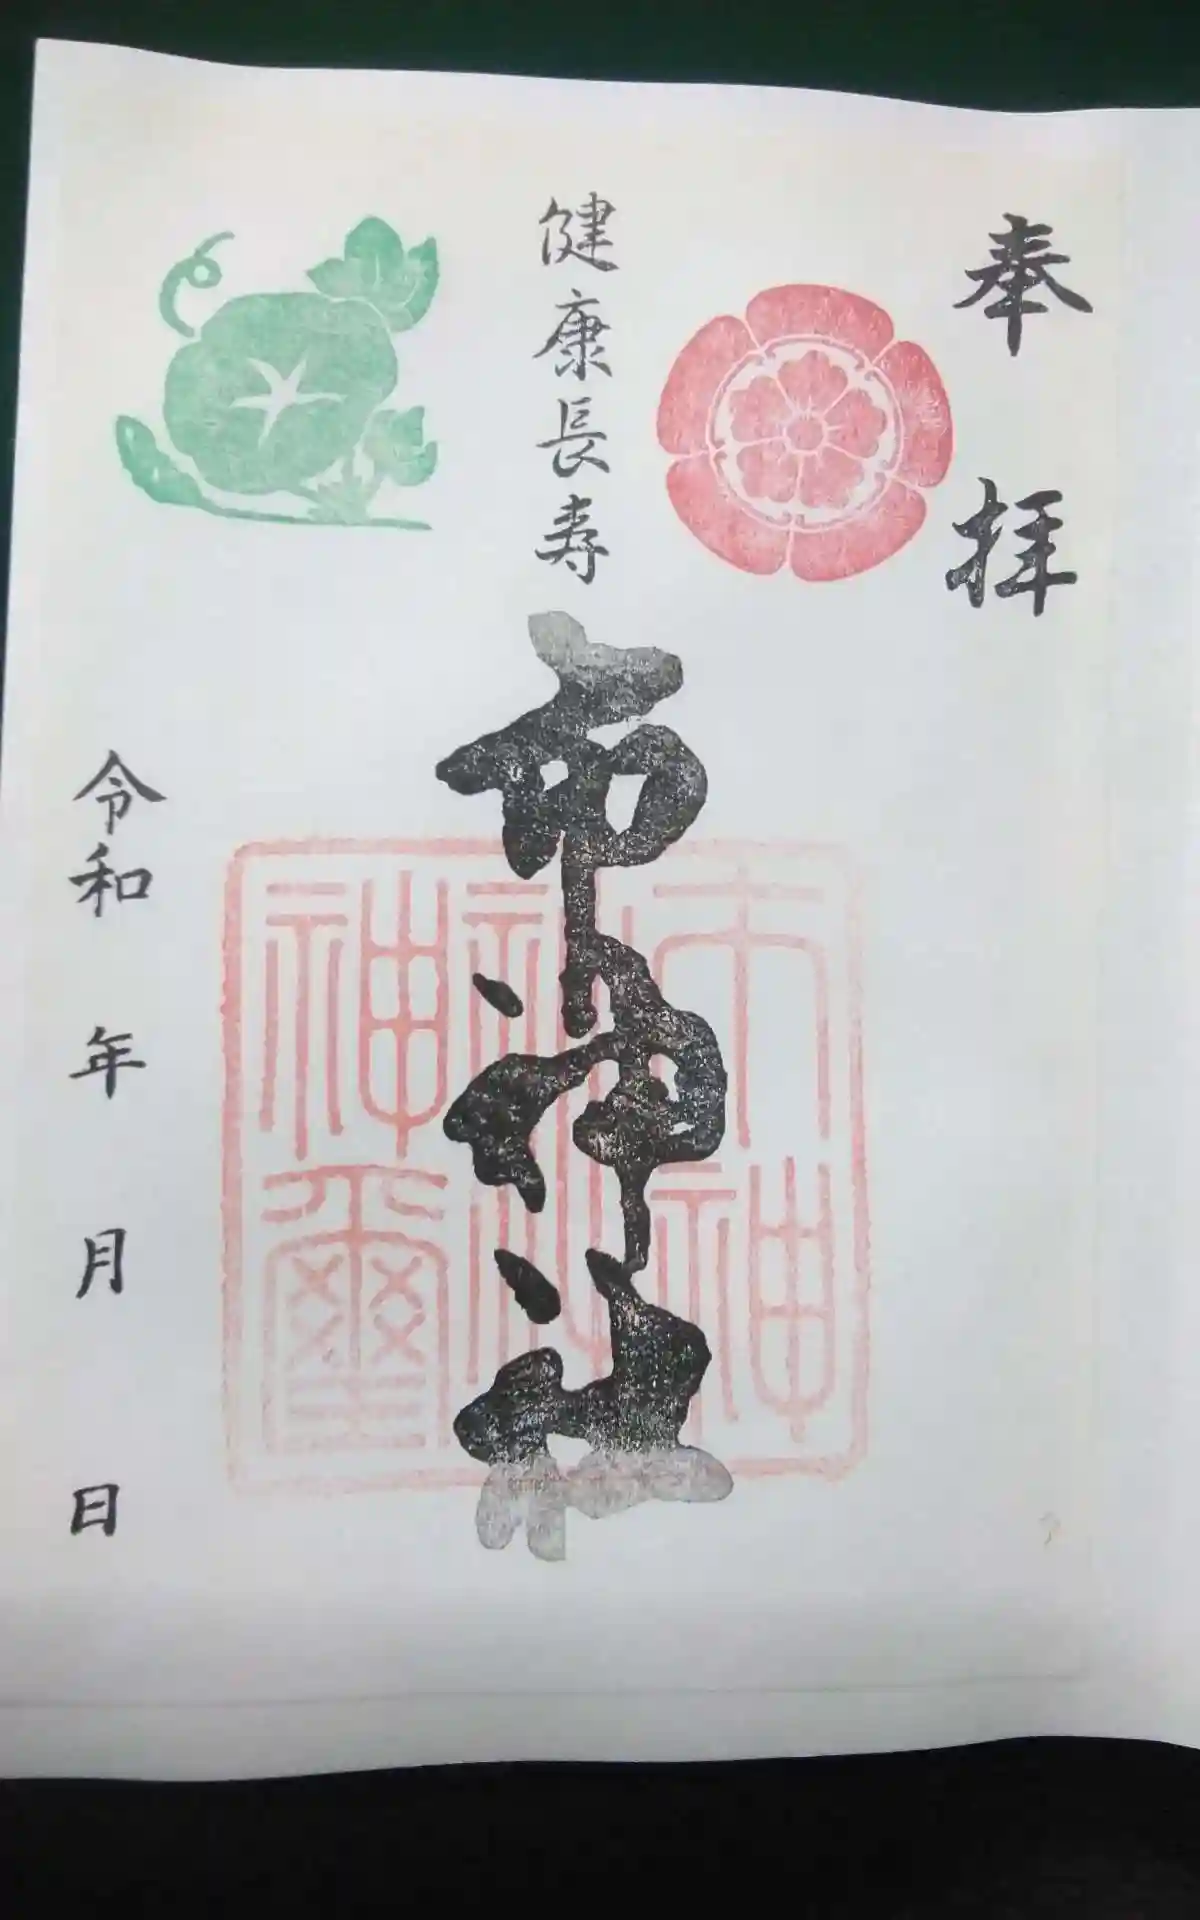 奉拝
健康長寿
市神社
市神社神璽
令和 年 月 日